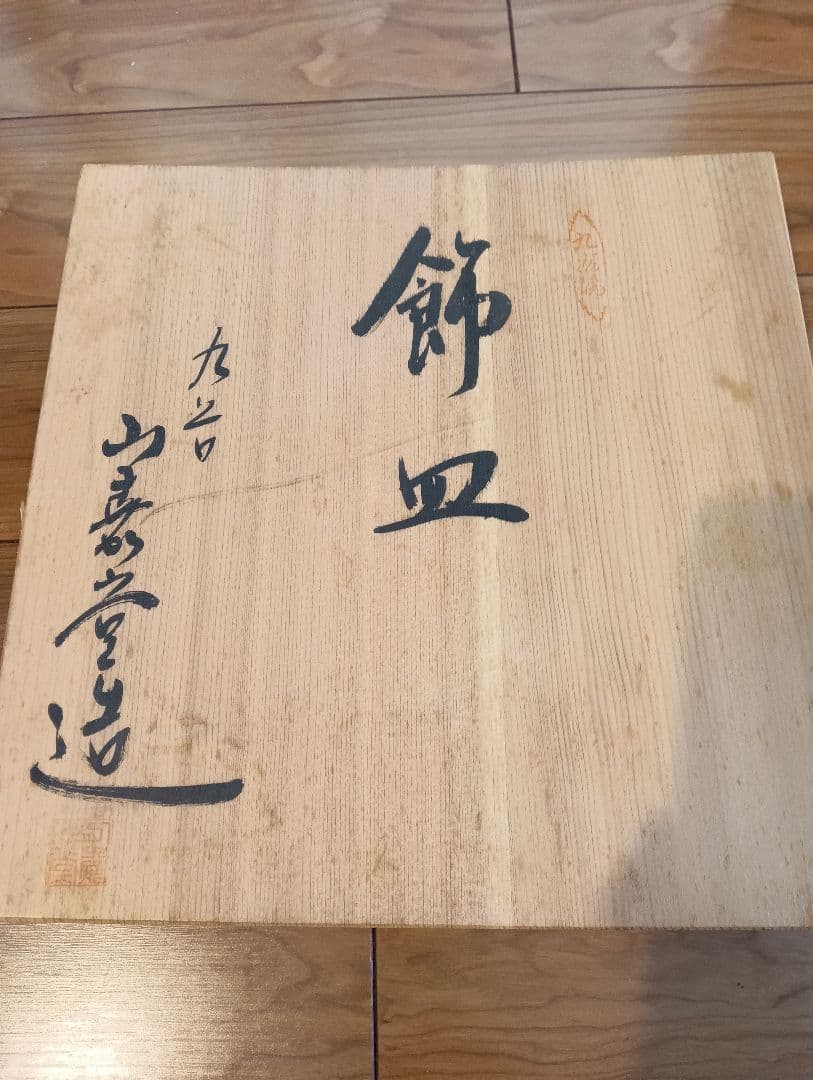 飾皿
九谷
山嘉堂造